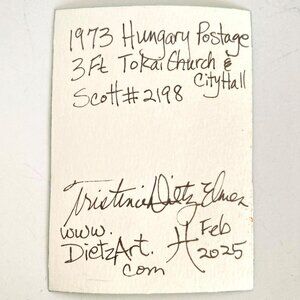 1973 Hungary Postage
3Ft Tokai Church &
City Hall
Scott # 2198
Tristina Dietz Elmes
www.
DietzArt.
com
Feb
2025